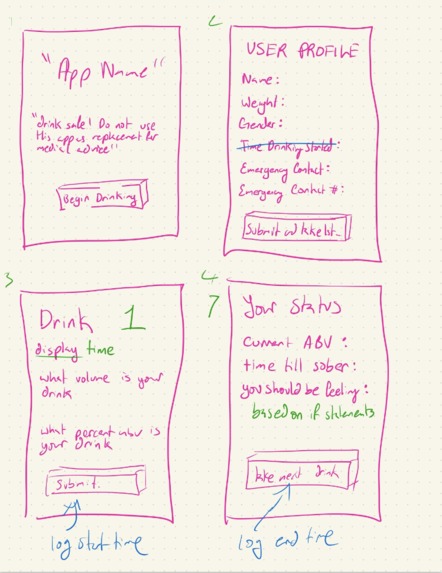 1
"App Name"
"drink safe! Do not use
this app as replacement for
medical advice"
Begin Drinking
2
USER PROFILE
Name:
Weight:
Gender:
Time Drinking Started:
Emergency Contact:
Emergency Contact #:
Submit and take 1st
3
Drink 1
display time
what volume is your
drink
what percent abv is
your Drink
Submit.
log start time
4
7
Your Status
current ABV:
time till sober:
you should be feeling:
based on if statements
take next drink
log end time